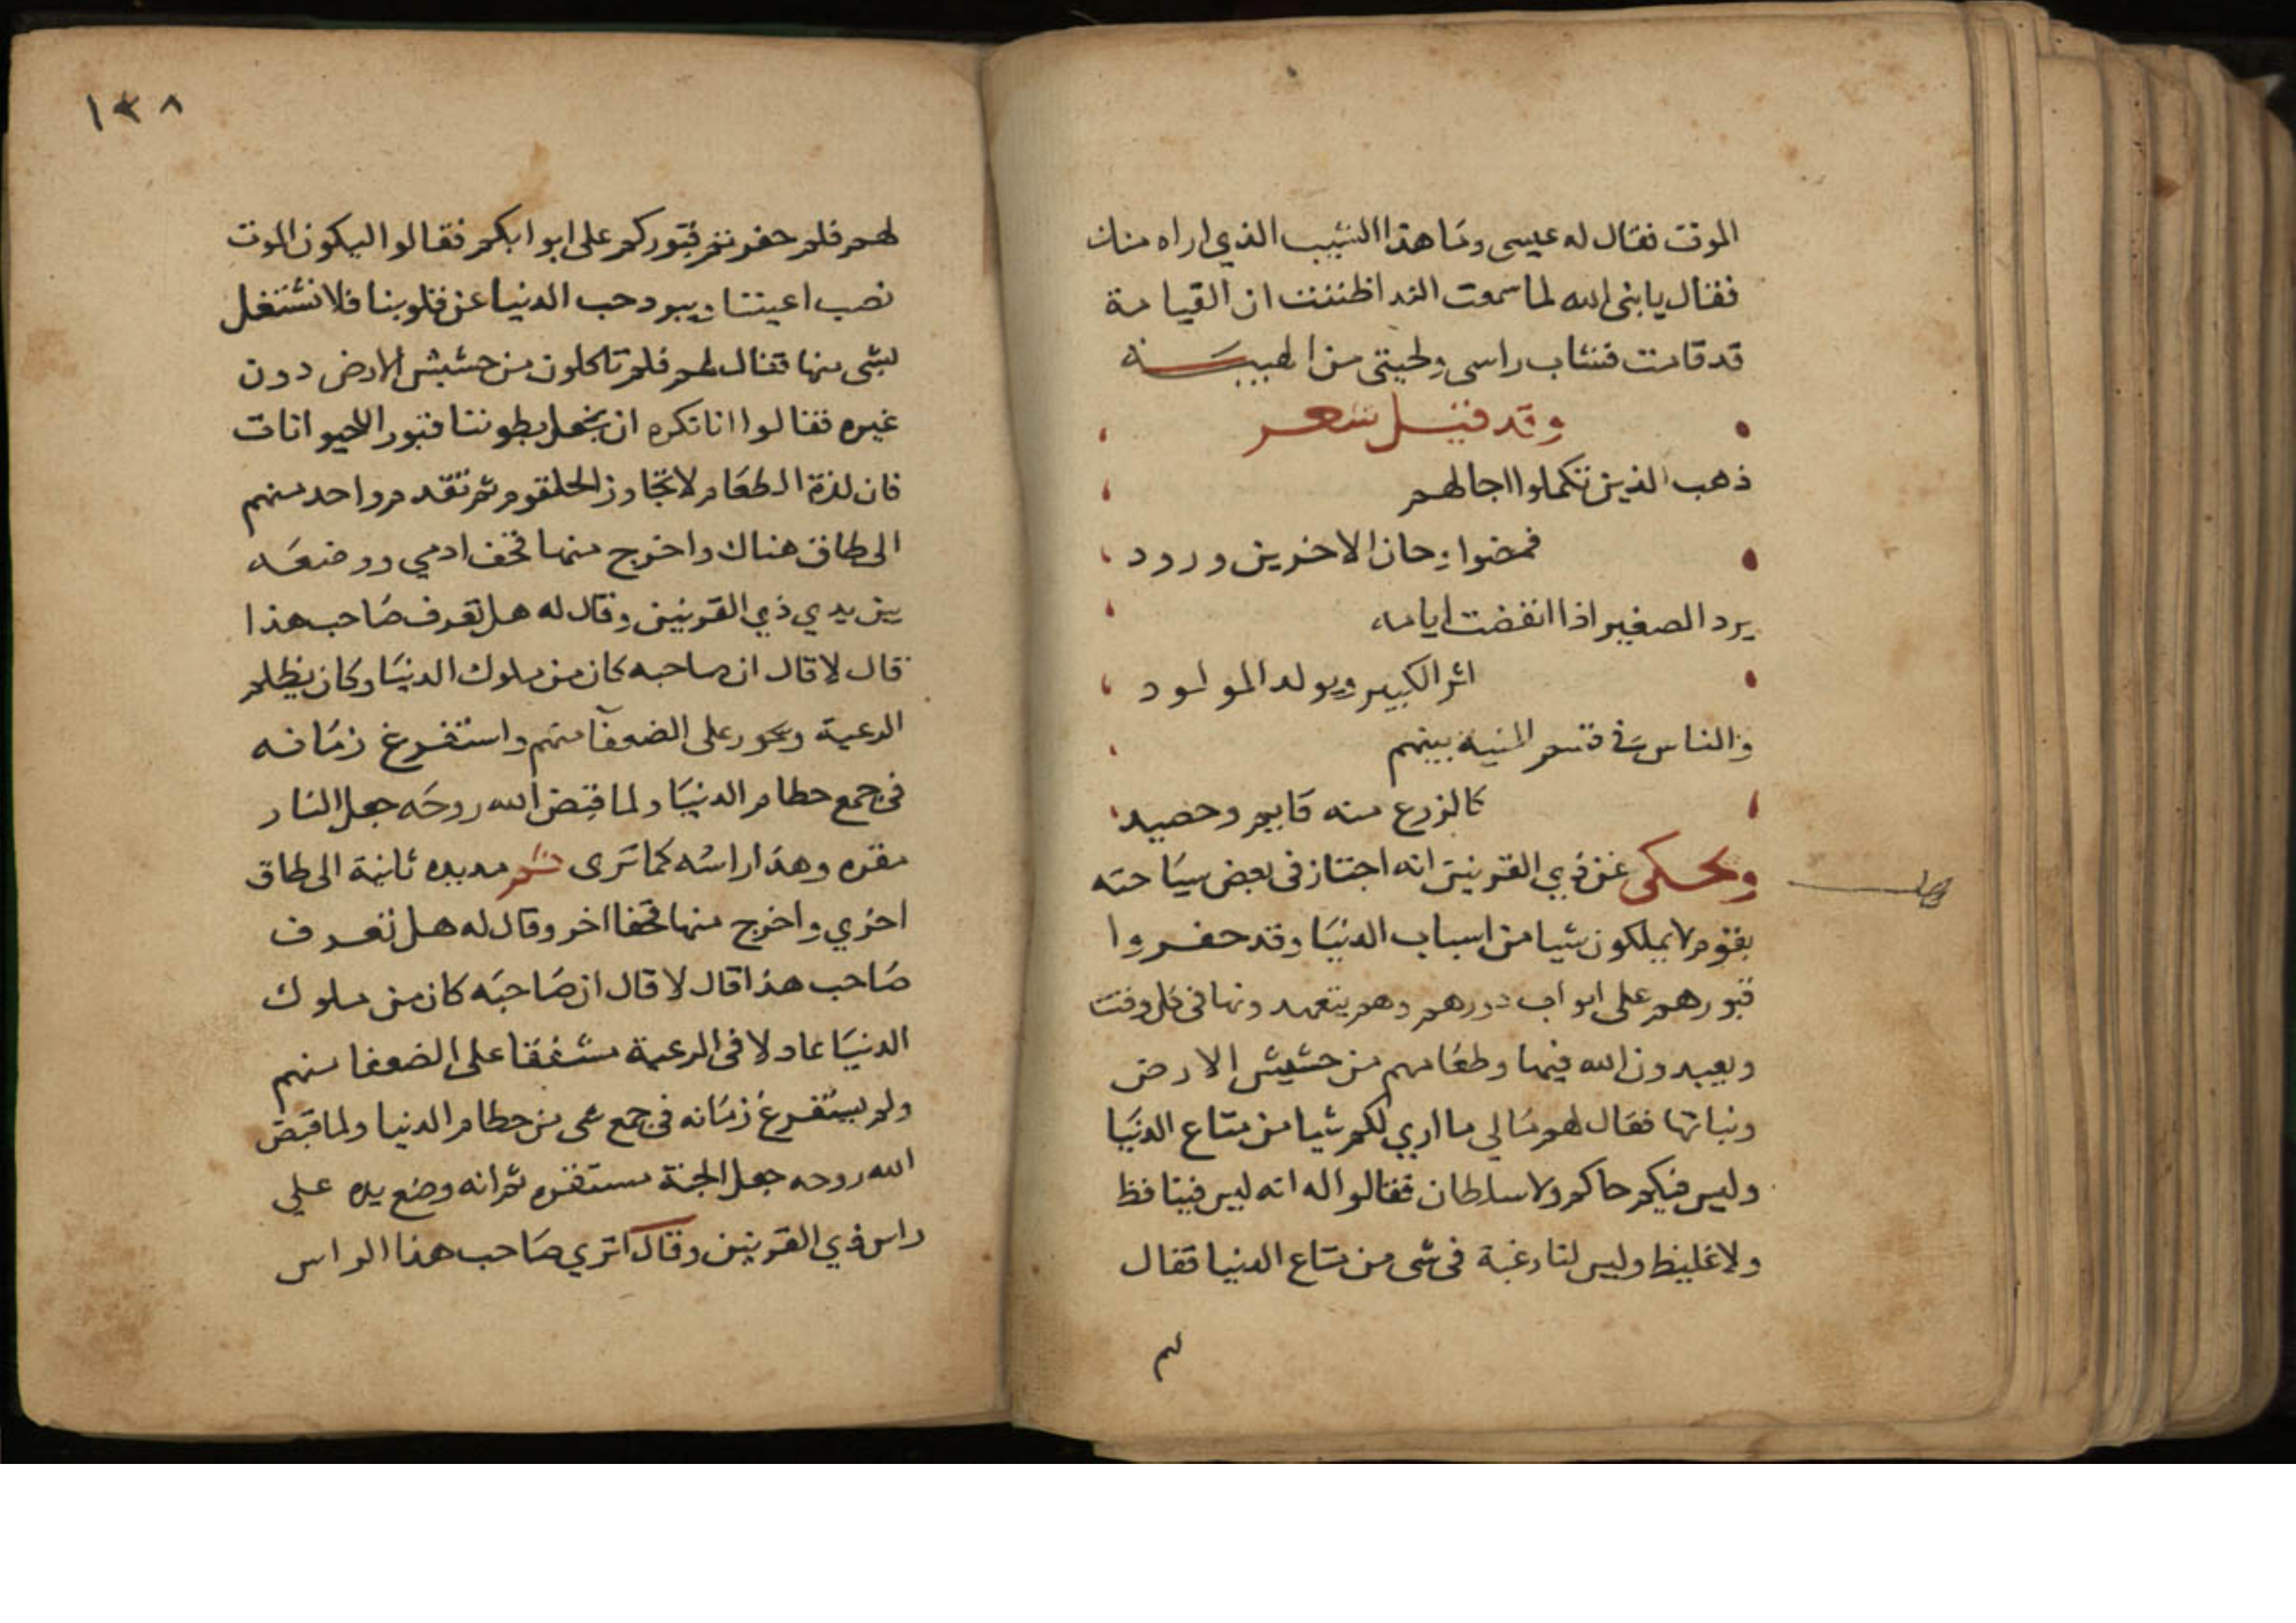 الموت فقال له عيسى وما هذا الشيب الذي اراه منك
فقال يا بنى الله لما سمعت الندا ظننت ان القيامة
قد قامت فشاب راسى ولحيتى من الهيبة
وقد قيل شعر
ذهب الذين تكملوا اجالهم
فمضوا وحان الاخرين ورود
يرد الصغير اذا انقضت ايامه
اثر الكبير ويولد المولود
والناس فى قسم المنية بينهم
كالزرع منه قايم وحصيد
ويحكى عن ذي القرنين انه اجتاز فى بعض سياحته
بقوم لا يملكون شيا من اسباب الدنيا وقد حفروا
قبورهم على ابواب دورهم وهم يتعهدونها فى كل وقت
ويعبدون الله فيها وطعامهم من حشيش الارض
ونباتها فقال لهم مالي ما اري لكم شيا من متاع الدنيا
وليس فيكم حاكم ولا سلطان فقالوا له انه ليس فينا فظ
ولا غليظ وليس لنا رغبة فى شى من متاع الدنيا فقال
١٣٨
لهم فلم حفرتم قبوركم على ابوابكم فقالوا ليكون الموت
نصب اعيننا ويبرد حب الدنيا عن قلوبنا فلا نشتغل
بشى منها فقال لهم فلم تاكلون من حشيش الارض دون
غيره فقالوا انا نكره ان نجعل بطوننا قبور اللحيوانات
فان لذة الطعام لا تجاوز الحلقوم ثم تقدم واحد منهم
الى طاق هناك واخرج منها قحف ادمي ووضعه
بين يدي ذي القرنين وقال له هل تعرف صاحب هذا
قال لا قال ان صاحبه كان من ملوك الدنيا وكان يظلم
الرعية ويجور على الضعفا منهم واستفرغ زمانه
فى جمع حطام الدنيا ولما قبض الله روحه جعل النار
مقره وهذا راسه كما ترى ثم مد يده ثانية الى طاق
اخري واخرج منها قحفا اخر وقال له هل تعرف
صاحب هذا قال لا قال ان صاحبه كان من ملوك
الدنيا عادلا فى الرعية مشفقا على الضعفا منهم
ولم يستفرغ زمانه فى جمع شى من حطام الدنيا ولما قبض
الله روحه جعل الجنة مستقره ثم انه وضع يده علي
راس ذي القرنين وقال اتري صاحب هذا الراس